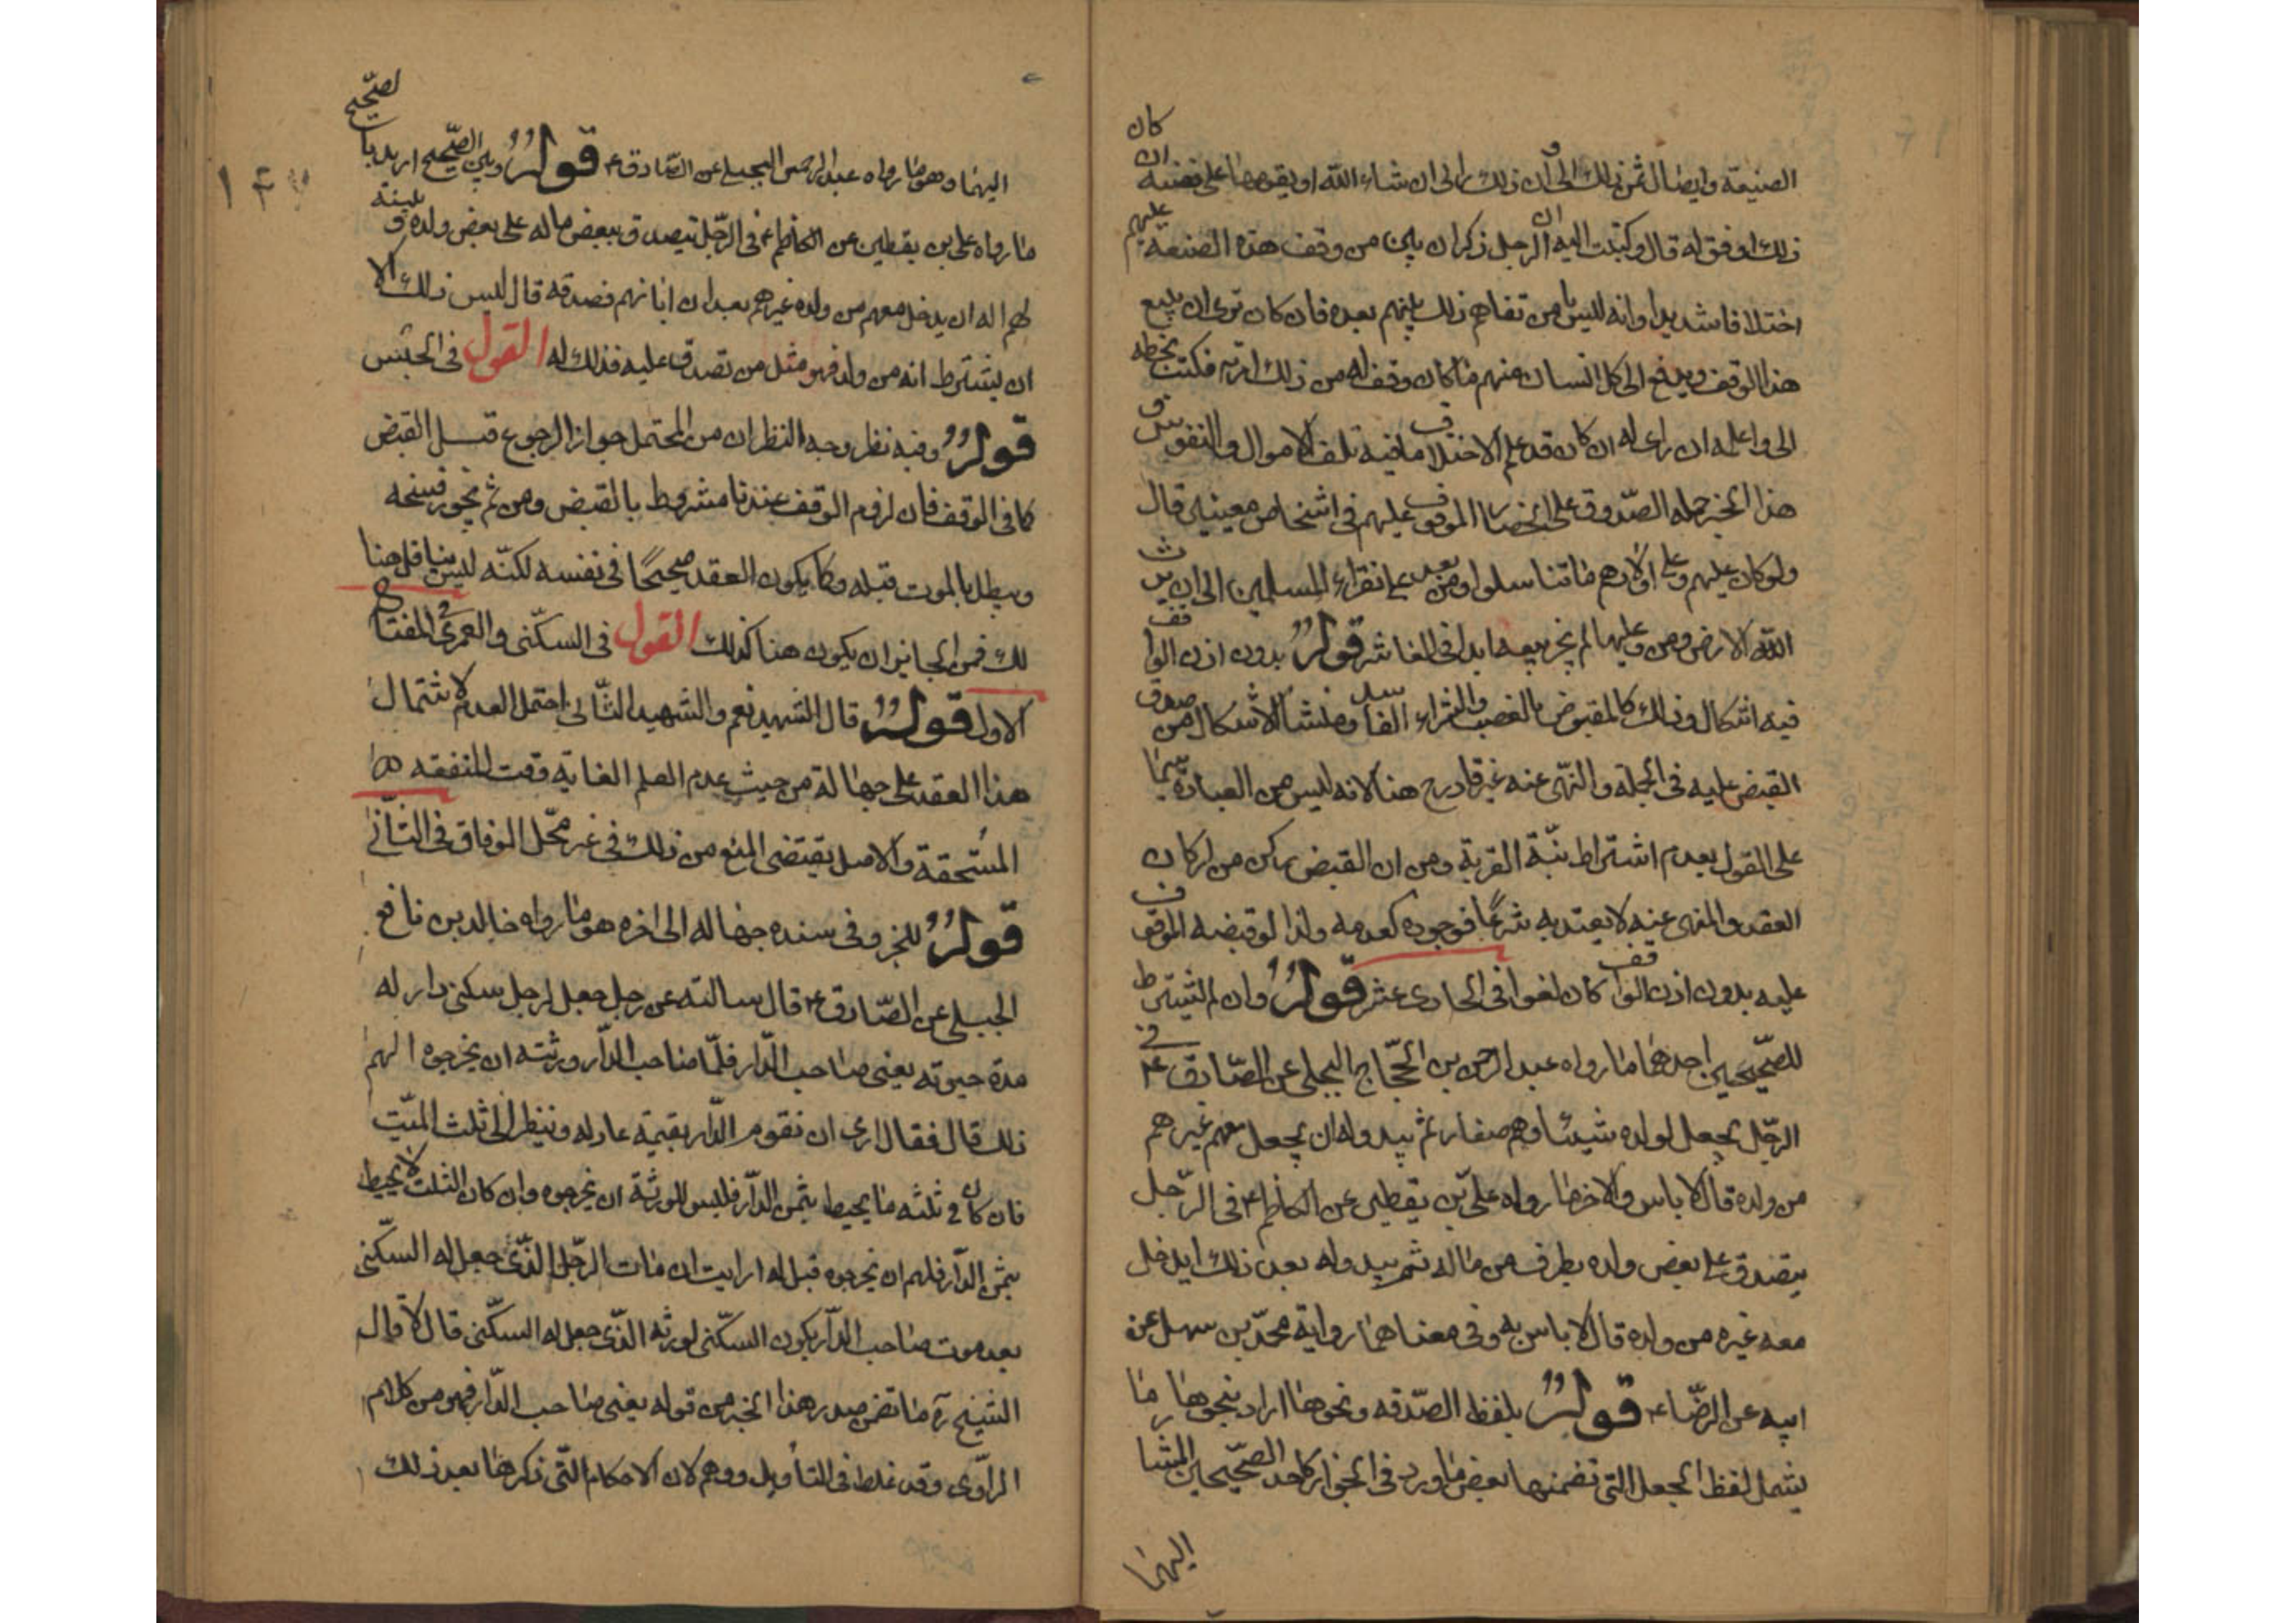 الضيعة وايصال ثمن ذلك الى ان ذلك رائى ان شاء الله او يقومها على نفسه ان كان
ذلك اوفق له قال وكتبت اليه ان الرجل ذكر ان بين من وقف هذه الضيعة عليهم
اختلافا شديدا وانه ليس يامن تفاهم ذلك بينهم بعده فان كان ترى ان يبيع
هذا الوقف ويدفع الى كل انسان منهم ما كان وقف له من ذلك امرته فكتب بخطه
الى واعلمه ان راى له ان كان قد علم الاختلاف ما فيه تلف الاموال والنفوس
هذا الخبر حمله الصدوق على انحصار الموقوف عليهم فى اشخاص معينين قال
ولو كان عليهم وعلى اولادهم ما تناسلوا ومن بعد على فقراء المسلمين الى ان يرث
الله الارض ومن عليها لم يجز بيعه ابدا فى العاشر قوله بدون اذن الواقف
فيه اشكال وذلك كالمقبوض بالغصب والشراء الفاسد ومنشأ الاشكال من صدق
القبض عليه فى الجملة والنهى عنه غير قادح هنا لانه ليس من العبادة سيما
على القول بعدم اشتراط نية القربة ومن ان القبض ركن من اركان
العقد والمنهى عنه لا يعتد به شرعًا فوجوده كعدمه ولذا لو قبضه الموقوف
عليه بدون اذن الواقف كان لغوا فى الحادى عشر قوله وان لم يشترط
للصحيحين احدهما ما رواه عبد الرحمن بن الحجاج البجلى عن الصادق ع فى
الرجل يجعل لولده شيئا وهم صغار ثم يبدو له ان يجعل معهم غيرهم
من ولده قال لا باس والاخر ما رواه على بن يقطين عن الكاظم ع فى الرجل
يتصدق على بعض ولده بطرف من ماله ثم يبدو له بعد ذلك ان يدخل
معه غيره من ولده قال لا باس به وفى معناهما رواية محمد بن سهل عن
ابيه عن الرضا ع قوله بلفظ الصدقه ونحوها اراد بنحوها ما
يشمل لفظ الجعل التى تضمنها بعض ما ورد فى الجواز كاحد الصحيحين المشار
اليهما
اليهما وهو ما رواه عبد الرحمن البجلى عن الصادق ع قوله وبين الصحيح اريد بالصحيح
ما رواه على بن يقطين عن الكاظم ع فى الرجل يتصدق ببعض ماله على بعض ولده و يبينه
لهم اله ان يدخل معهم من ولده غيرهم بعد ان ابانهم بصدقه قال ليس ذلك الا
ان يشترط انه من ولد فهو مثل من تصدق عليه فذلك له القول فى الحبس
قوله وفيه نظر وجه النظر ان من المحتمل جواز الرجوع قبل القبض
كما فى الوقف فان لزوم الوقف عندنا مشروط بالقبض ومن ثم يجوز فسخه
ويبطل بالموت قبله وكما يكون العقد صحيحًا فى نفسه لكنه ليس بناقل هنا
لك فمن الجائز ان يكون هنا كذلك القول فى السكنى والعمرى المفتاح
الاول قوله قال الشهيد نعم والشهيد الثانى احتمل العدم لاشتمال
هذا العقد على جهالة من حيث عدم العلم الغاية وقت للنفقه
المستحقة والاصل يقتضى المنع من ذلك فى غير محل الوفاق فى الثانى
قوله للخبر وفى سنده جهاله الى اخره هو ما رواه خالد بن نافع
البجلى عن الصادق ع قال سالته عن رجل جعل لرجل سكنى دار له
مدة حيوته يعنى صاحب الدار فلما مات صاحب الدار ورثته ان يخرجوه الهم
ذلك قال فقال ارى ان تقوم الدار بقيمة عادله وينظر الى ثلث الميت
فان كان فى ثلثه ما يحيط بثمن الدار فليس للورثة ان يخرجوه وان كان الثلث لا يحيط
بثمن الدار فلهم ان يخرجوه قيل له ارايت ان مات الرجل الذى جعل له السكنى
بعد موت صاحب الدار يكون السكنى لورثه الذى جعل له السكنى قال لا قال
الشيخ ره ما تضمن صدر هذا الخبر من قوله يعنى صاحب الدار فهو من كلام
الراوى وقد غلط فى التأويل ووهم لان الاحكام التى ذكرها بعد ذلك